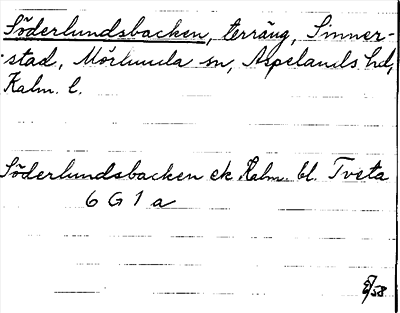 Söderlundsbacken, terräng, Linner-
stad, Mörlunda sn, Aspelands hd,
Kalm. l.
Söderlundsbacken ek Kalm. bl. Tveta
6 G 1 a
/58